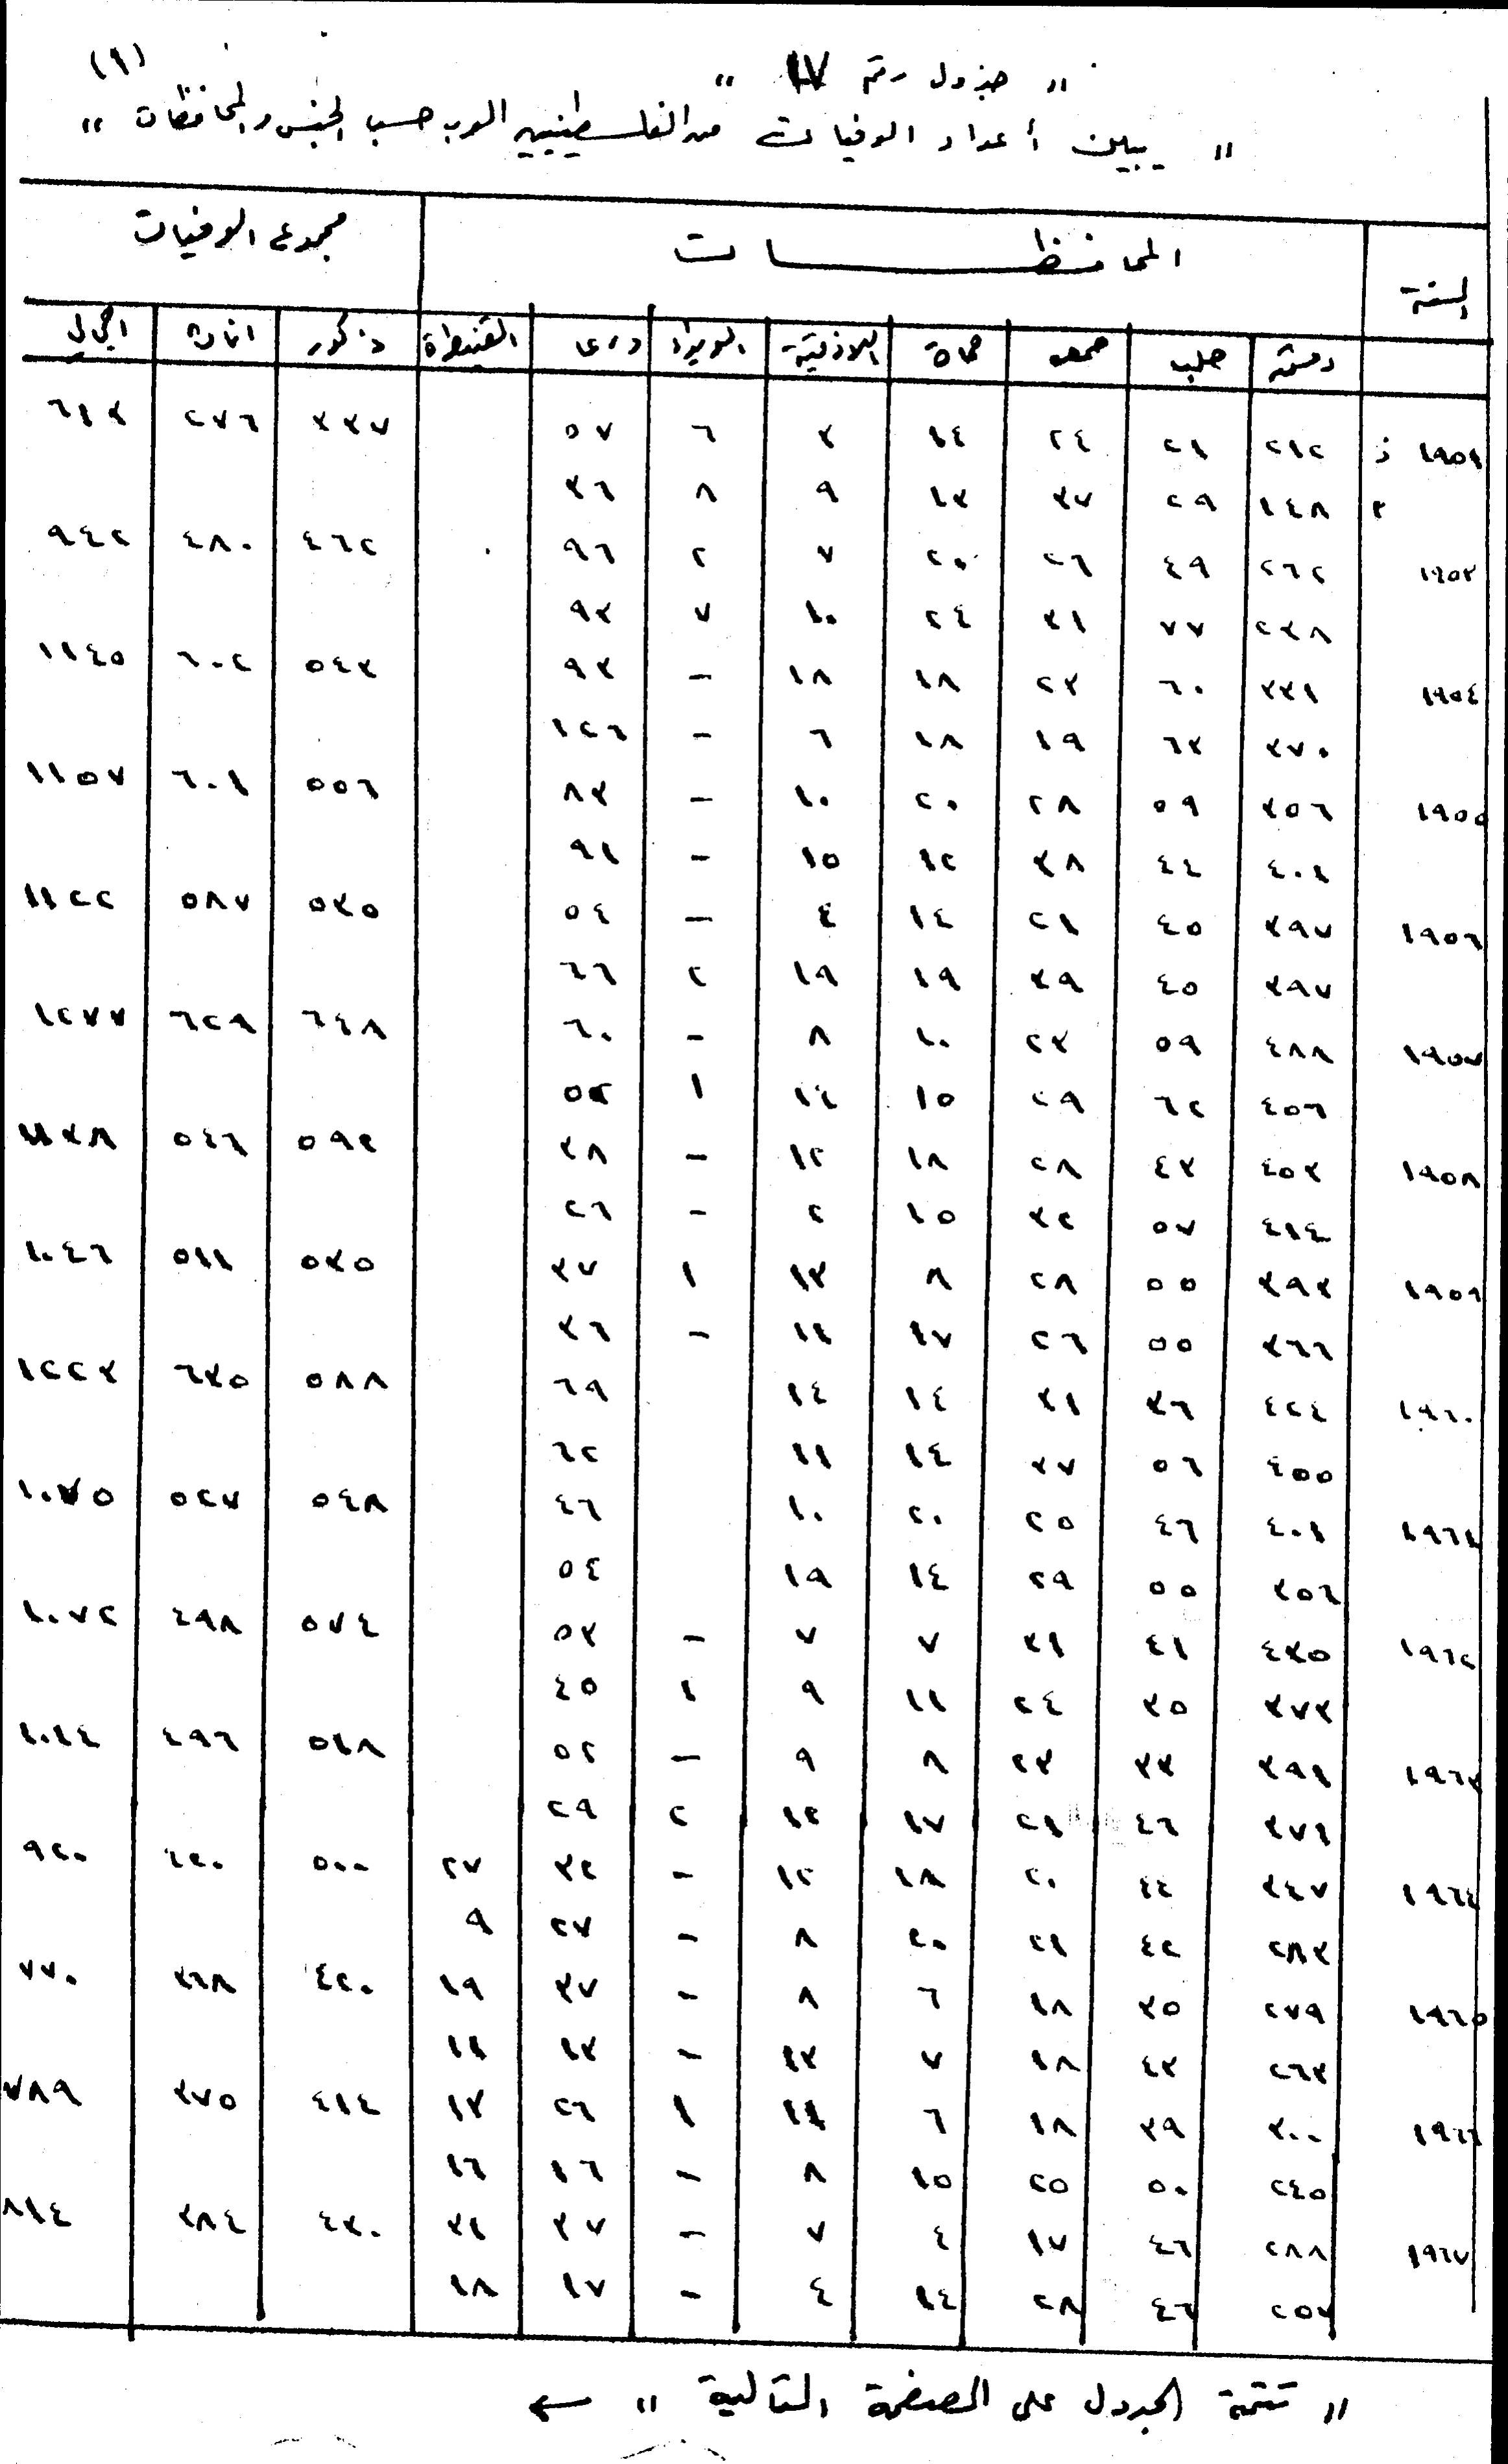 (١)
" جدول رقم ١٧ "
" يبين أعداد الوفيات من الفلسطينيين العرب حسب الجنس والمحافظات "
السنة المحافظات مجموع الوفيات
دمشق حلب حمص حماة اللاذقية السويداء درعا القنيطرة ذكور اناث اجمالي
١٩٥١ ذ ٢١٢ ٢١ ٢٤ ١٤ ٣ ٦ ٥٧ ٣٣٧ ٢٧٦ ٦١٣
٢ ١٤٨ ٢٩ ٣٧ ١٣ ٩ ٨ ٣٦
١٩٥٣ ٢٦٢ ٤٩ ٢٦ ٢٠ ٧ ٢ ٩٦ ٤٦٢ ٤٨٠ ٩٤٢
٢٣٨ ٧٧ ٣١ ٢٤ ١٠ ٧ ٩٣
١٩٥٤ ٣٣١ ٦٠ ٢٣ ١٨ ١٨ - ٩٣ ٥٤٣ ٦٠٢ ١١٤٥
٣٧٠ ٦٣ ١٩ ١٨ ٦ - ١٢٦
١٩٥٥ ٣٥٦ ٥٩ ٢٨ ٢٠ ١٠ - ٨٣ ٥٥٦ ٦٠١ ١١٥٧
٤٠١ ٤٤ ٣٨ ١٢ ١٥ - ٩١
١٩٥٦ ٣٩٧ ٤٥ ٢١ ١٤ ٤ - ٥٤ ٥٣٥ ٥٨٧ ١١٢٢
٣٩٧ ٤٥ ٣٩ ١٩ ١٩ ٢ ٦٦
١٩٥٧ ٤٨٨ ٥٩ ٢٣ ١٠ ٨ - ٦٠ ٦٤٨ ٦٢٩ ١٢٧٧
٤٥٦ ٦٢ ٢٩ ١٥ ١٤ ١ ٥٢
١٩٥٨ ٤٥٣ ٤٣ ٢٨ ١٨ ١٢ - ٣٨ ٥٩٢ ٥٤٦ ١١٣٨
٤١٤ ٥٧ ٣٢ ١٥ ٢ - ٢٦
١٩٥٩ ٣٩٣ ٥٥ ٢٨ ٨ ١٣ ١ ٣٧ ٥٣٥ ٥١١ ١٠٤٦
٣٦٦ ٥٥ ٢٦ ١٧ ١١ - ٣٦
١٩٦٠ ٤٢٤ ٣٦ ٣١ ١٤ ١٤ ٦٩ ٥٨٨ ٦٣٥ ١٢٢٣
٤٥٥ ٥٦ ٣٧ ١٤ ١١ ٦٢
١٩٦١ ٤٠١ ٤٦ ٢٥ ٢٠ ١٠ ٤٦ ٥٤٨ ٥٢٧ ١٠٧٥
٣٥٦ ٥٥ ٢٩ ١٤ ١٩ ٥٤
١٩٦٢ ٤٣٥ ٤١ ٣١ ٧ ٧ - ٥٣ ٥٧٤ ٤٩٨ ١٠٧٢
٣٧٣ ٣٥ ٢٤ ١١ ٩ ١ ٤٥
١٩٦٣ ٣٩١ ٣٣ ٢٣ ٨ ٩ - ٥٢ ٥١٨ ٤٩٦ ١٠١٤
٣٧١ ٤٦ ٢١ ١٧ ١٢ ٢ ٢٩
١٩٦٤ ٣٤٧ ٤٤ ٢٠ ١٨ ١٢ - ٣٢ ٢٧ ٥٠٠ ٤٢٠ ٩٢٠
٢٨٣ ٤٢ ٢١ ٢٠ ٨ - ٢٧ ٩
١٩٦٥ ٢٧٩ ٣٥ ١٨ ٦ ٨ - ٣٧ ١٩ ٤٢٠ ٣٦٨ ٧٧٠
٢٦٣ ٤٣ ١٨ ٧ ١٣ - ١٣ ١١
١٩٦٦ ٣٠٠ ٣٩ ١٨ ٦ ١١ ١ ٢٦ ١٣ ٤١٤ ٣٧٥ ٧٨٩
٢٤٥ ٥٠ ٢٥ ١٥ ٨ - ١٦ ١٦
١٩٦٧ ٢٨٨ ٤٦ ١٧ ٤ ٧ - ٣٧ ٣١ ٤٣٠ ٣٨٤ ٨١٤
٢٥٧ ٤٦ ٢٨ ١٤ ٤ - ١٧ ١٨
" تتمة الجدول على الصفحة التالية " ←